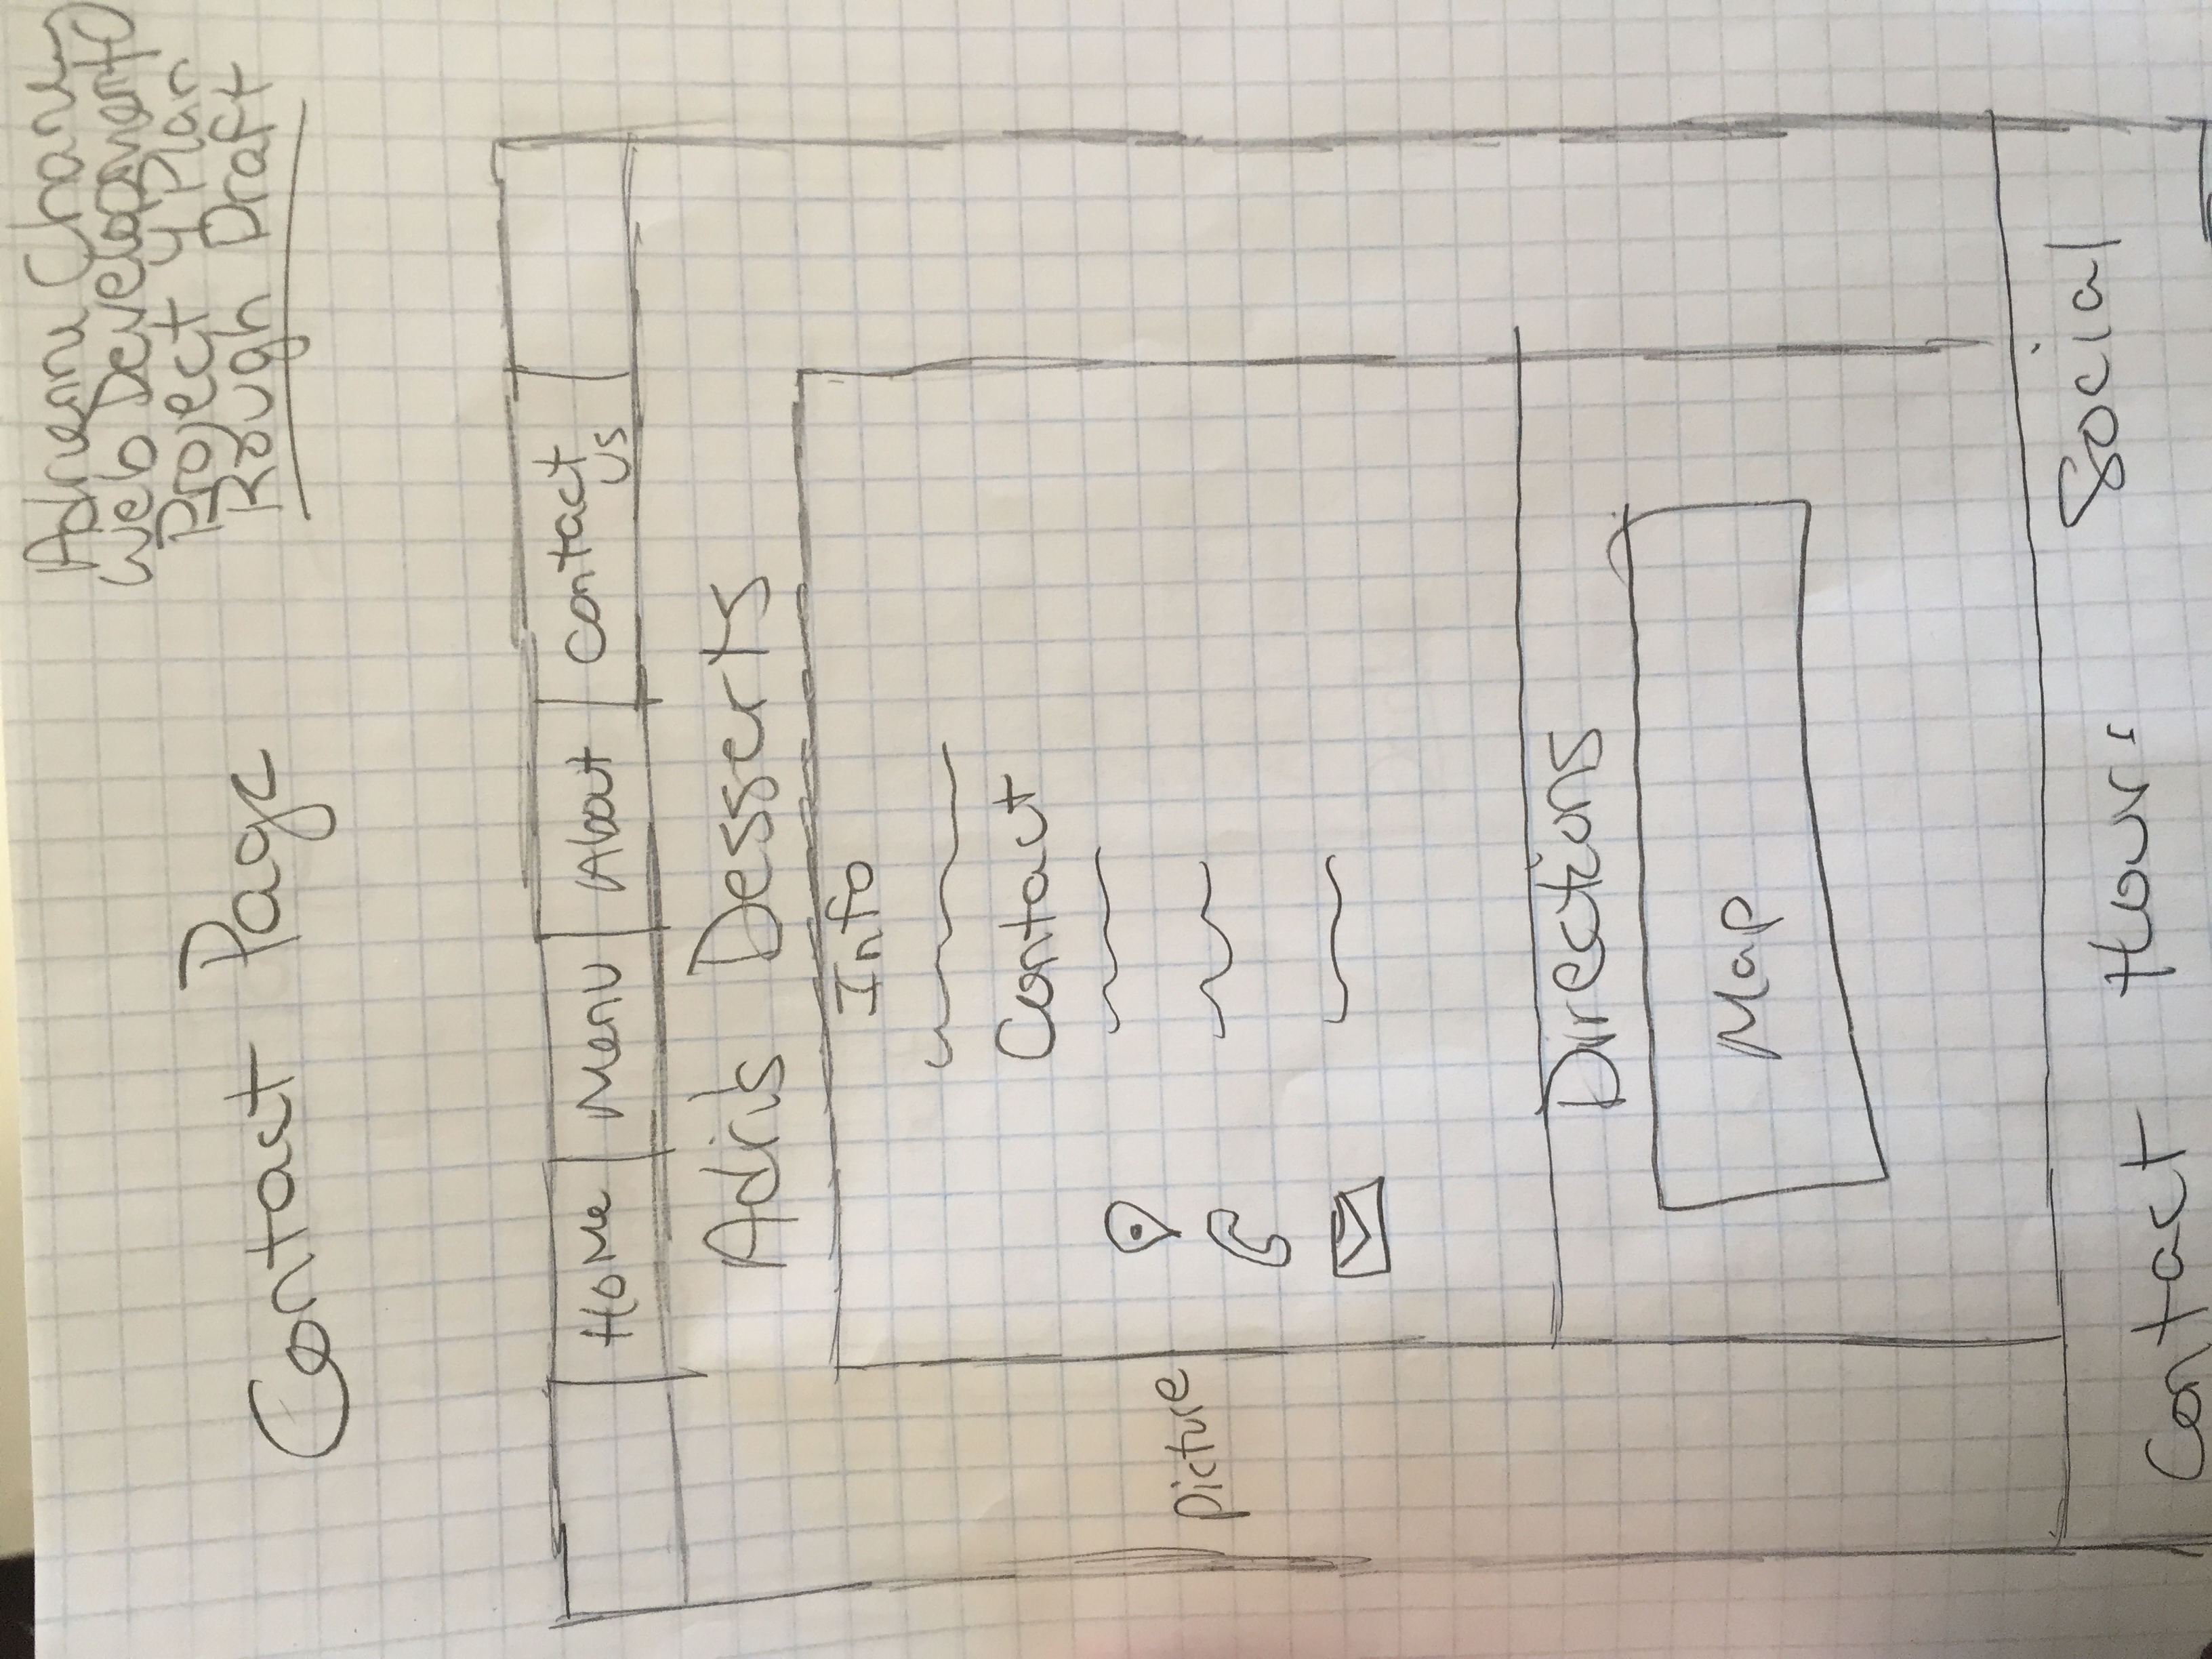 Adrienne Chaney
Web Development
Project 4 Plan
Rough Draft
Contact Page
Home Menu About Contact
us
Adri's Desserts
Info
Contact
Picture
Directions
Map
Contact Hours Social